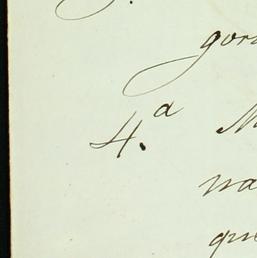 gor
4.a M
na
que